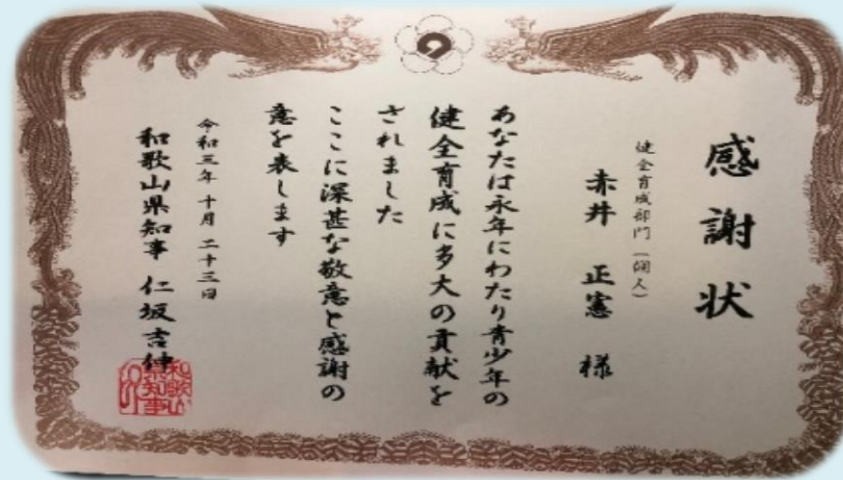 感謝状
健全育成部門（個人）
赤井 正憲 様
あなたは永年にわたり青少年の
健全育成に多大の貢献を
されました
ここに深甚な敬意と感謝の
意を表します
令和三年 十月 二十三日
和歌山県知事 仁坂吉伸
和歌山県知事之印